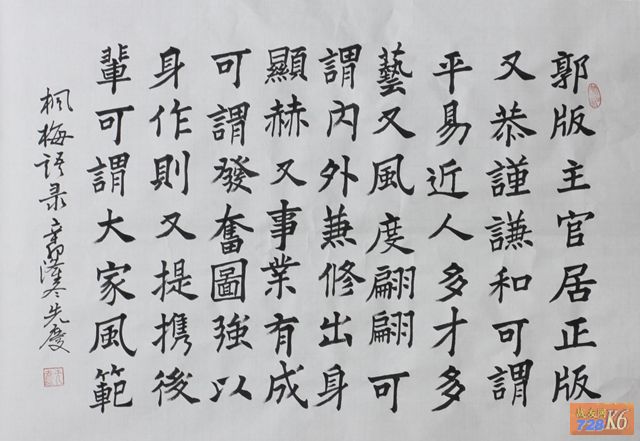 郭版主官居正版
又恭謹謙和可謂
平易近人多才多
藝又風度翩翩可
謂內外兼修出身
顯赫又事業有成
可謂發奮圖強以
身作則又提携後
輩可謂大家風範
枫梅语录
战友网
728K6